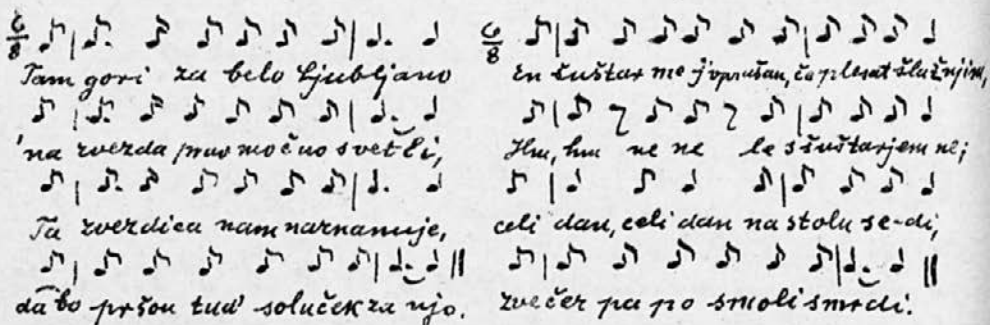 6/8
Tam gori za belo Ljubljano
'na zvezda prav močno svetli,
Ta zvezdica nam naznanuje,
da bo pršou tud' soluček za njo.
6/8
En šuštar me j' vprašan, ča plesat šla ž njim,
Hm, hm ne ne le s šuštarjem ne;
celi dan, celi dan na stolu se-di,
zvečer pa po smoli smrdi.